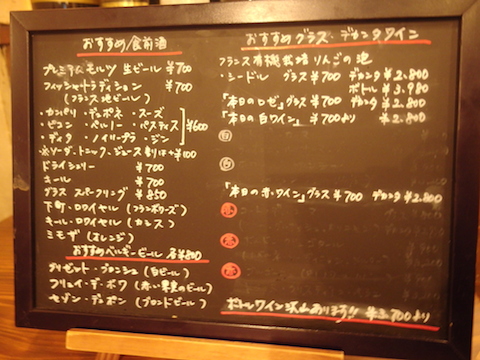 おすすめ/食前酒
プレミアムモルツ 生ビール ¥700
フィッシャートラディション ¥700
(フランス地ビール)
・カンパリ・ディポネ・スーズ
・ピコン・ペルノー・パスティス ¥600
・ディタ・ノイリープラ・ジン
※ソーダ、トニック、ジュース割りは+¥100
ドライシェリー ¥700
キール ¥700
グラス スパークリング ¥850
下町・ロワイヤル(フランボワーズ)
キール・ロワイヤル(カシス)
ミモザ (オレンジ)
おすすめベルギービール 各¥800
グリゼット・ブロンシュ(白ビール)
フリュイ・デ・ボワ(赤い果実のビール)
セゾン・デュポン(ブロンドビール)
おすすめ グラス・デカンタワイン
フランス有機栽培りんごの泡
・シードル グラス ¥700 デカンタ ¥2.800
ボトル ¥3.980
「本日のロゼ」グラス ¥700 デカンタ ¥2.800
「本日の白ワイン」 ¥700より ¥2.800
白
白
「本日の赤・ワイン」グラス ¥700 デカンタ ¥2.800
赤
赤
赤
ボトルワイン沢山あります!! ¥3,700より